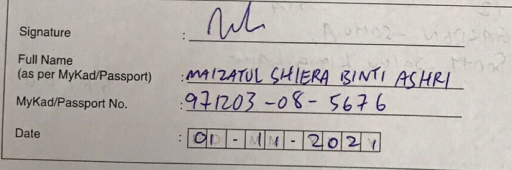 Signature :
Full Name
(as per MyKad/Passport) : MAIZATUL SHIERA BINTI ASHRI
MyKad/Passport No. : 971203-08-5676
Date : 01-11-2021